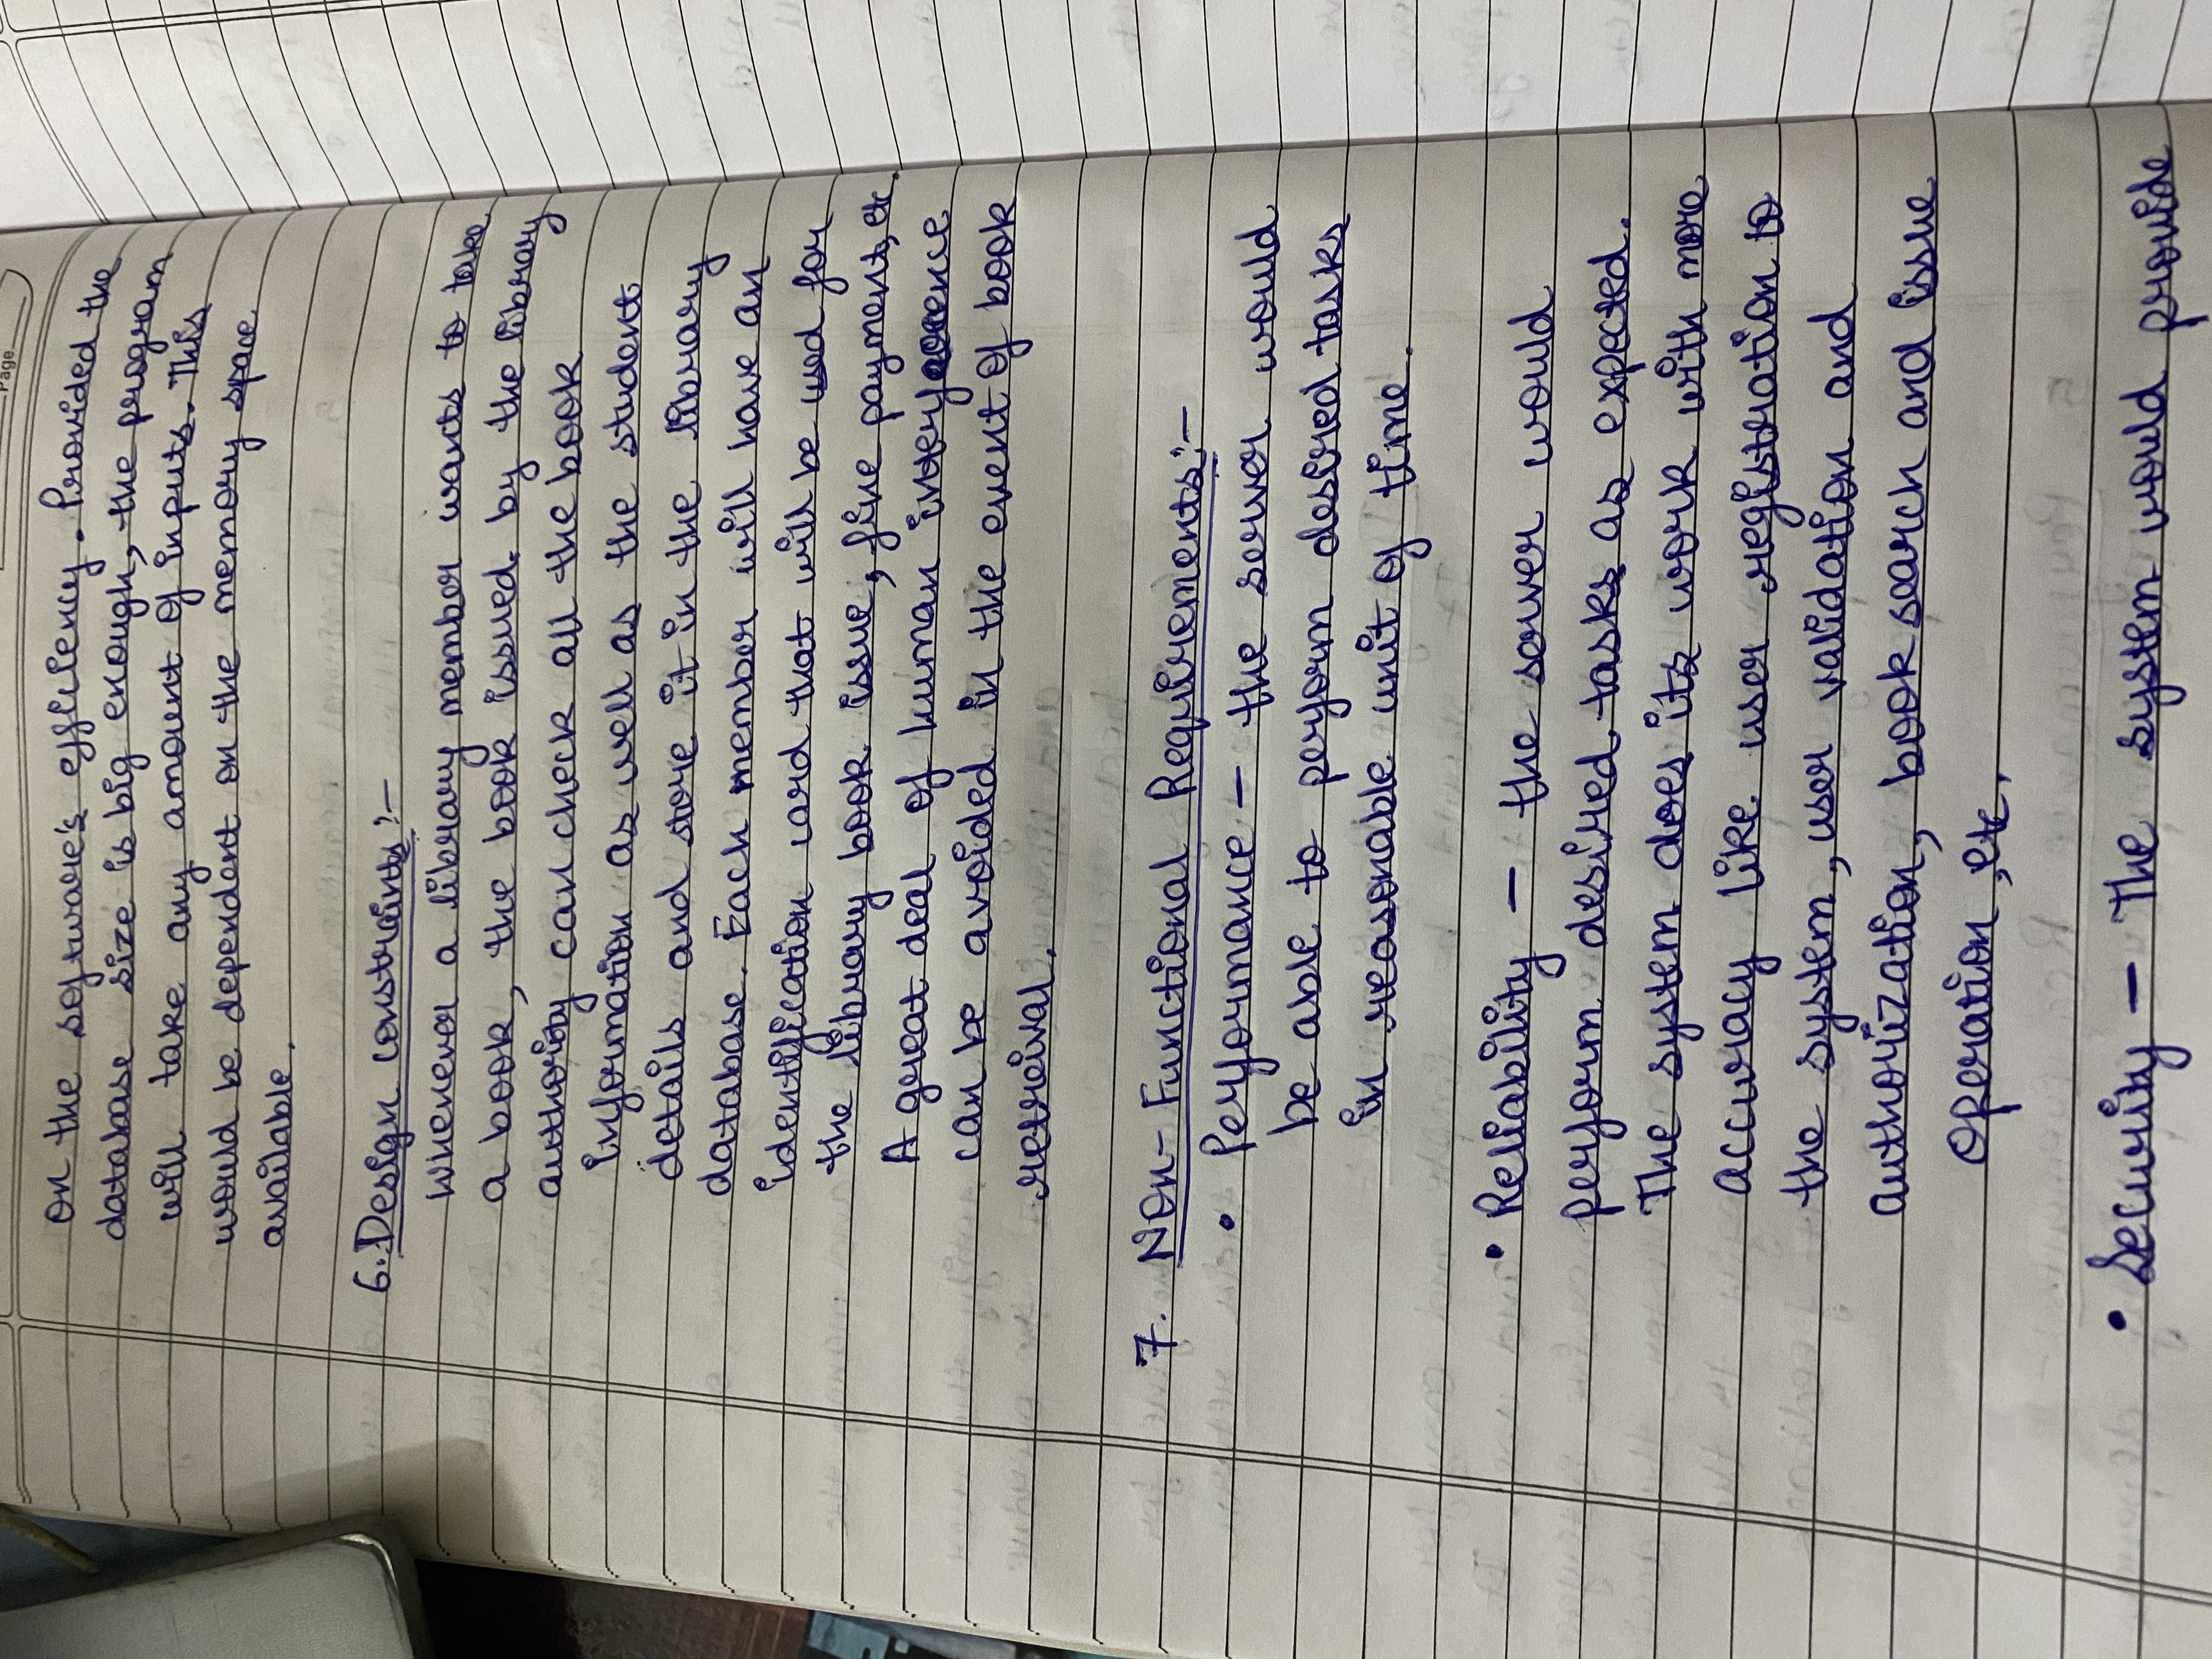 Page
on the software's efficiency. Provided the
database size is big enough, the program
will take any amount of inputs. This
would be dependent on the memory space
available.
6. Design constraints :-
Whenever a library member wants to take
a book, the book issued by the library
authority can check all the book
information as well as the student
details and store it in the library
database. Each member will have an
identification card that will be used for
the library book issue, fine payment, etc.
A great deal of human interference
can be avoided in the event of book
retreival.
7. Non-Functional Requirements:-
• Performance - the server would
be able to perform desired tasks
in reasonable unit of time.
• Reliability - the server would
perform desired tasks as expected.
The system does its work with more
accuracy like user registration to
the system, user validation and
authorization, book search and issue
operation, etc.
• Security - The system would provide